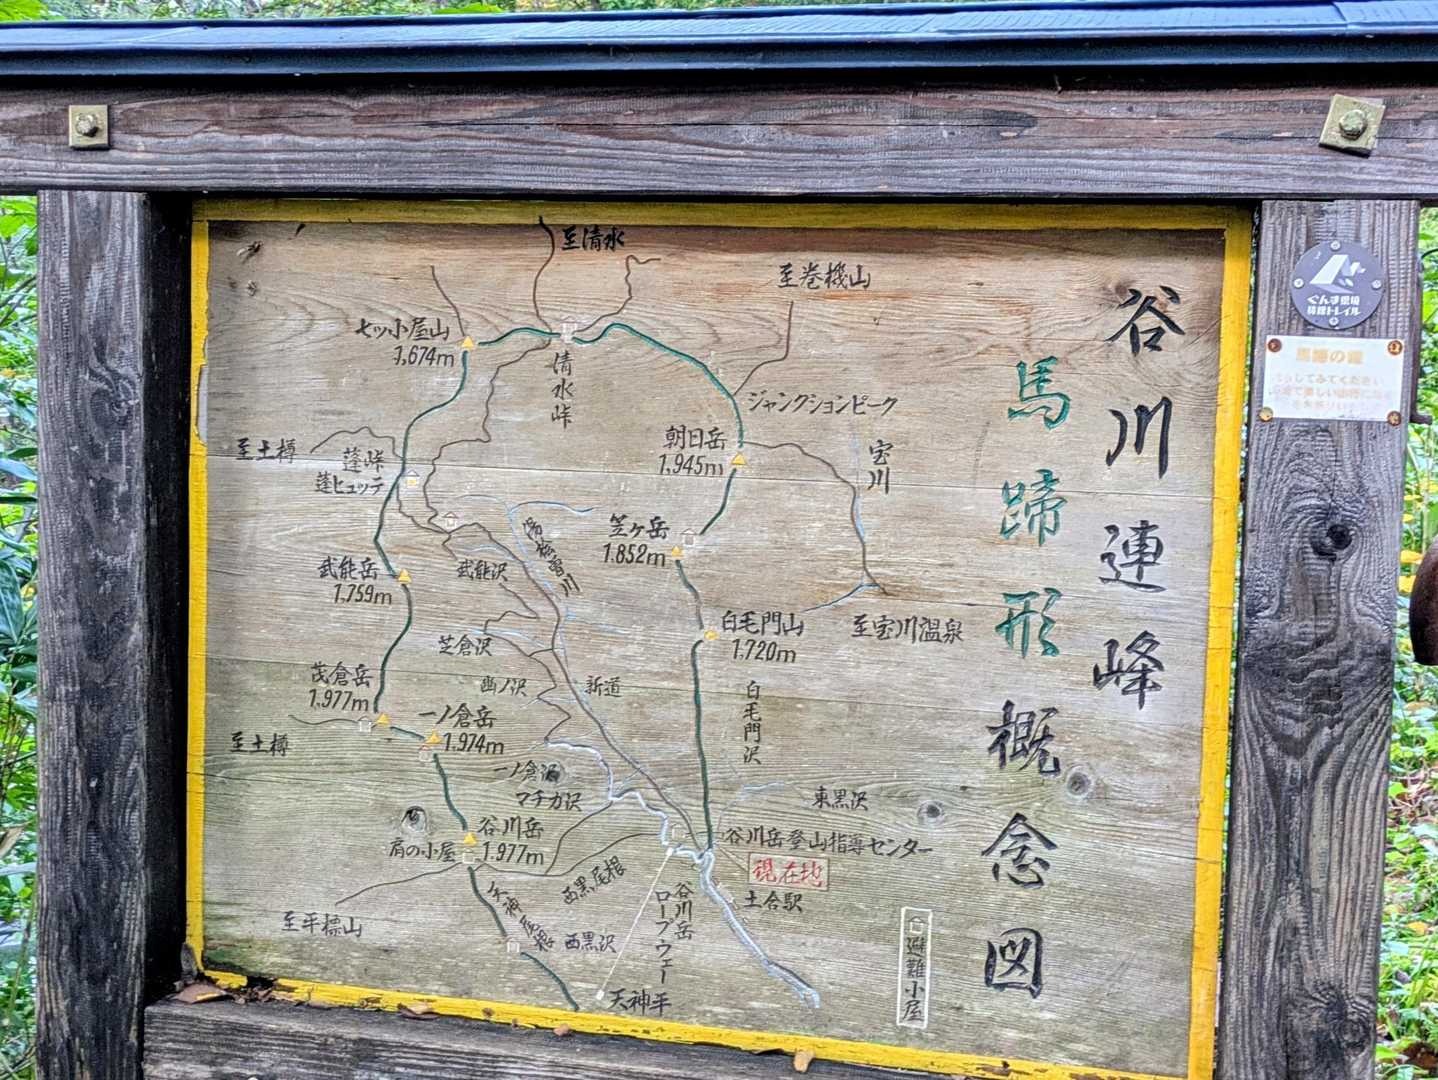 谷川連峰
馬蹄形概念図
至清水
至巻機山
七ッ小屋山
1,674m
清水峠
ジャンクションピーク
朝日岳
1,945m
宝川
至土樽
蓬峠
蓬ヒュッテ
笠ヶ岳
1.852m
湯桧曽川
武能岳
1,759m
武能沢
白毛門山
1.720m
至宝川温泉
芝倉沢
茂倉岳
1,977m
幽ノ沢
新道
白毛門沢
一ノ倉岳
1.974m
至土樽
一ノ倉沢
マチガ沢
東黒沢
谷川岳
1.977m
肩の小屋
谷川岳登山指導センター
現在地
西黒尾根
土合駅
至平標山
天神尾根
西黒沢
谷川岳
ロープウェー
天神平
避難小屋
ぐんま県境
稜線トレイル
馬蹄の鐘